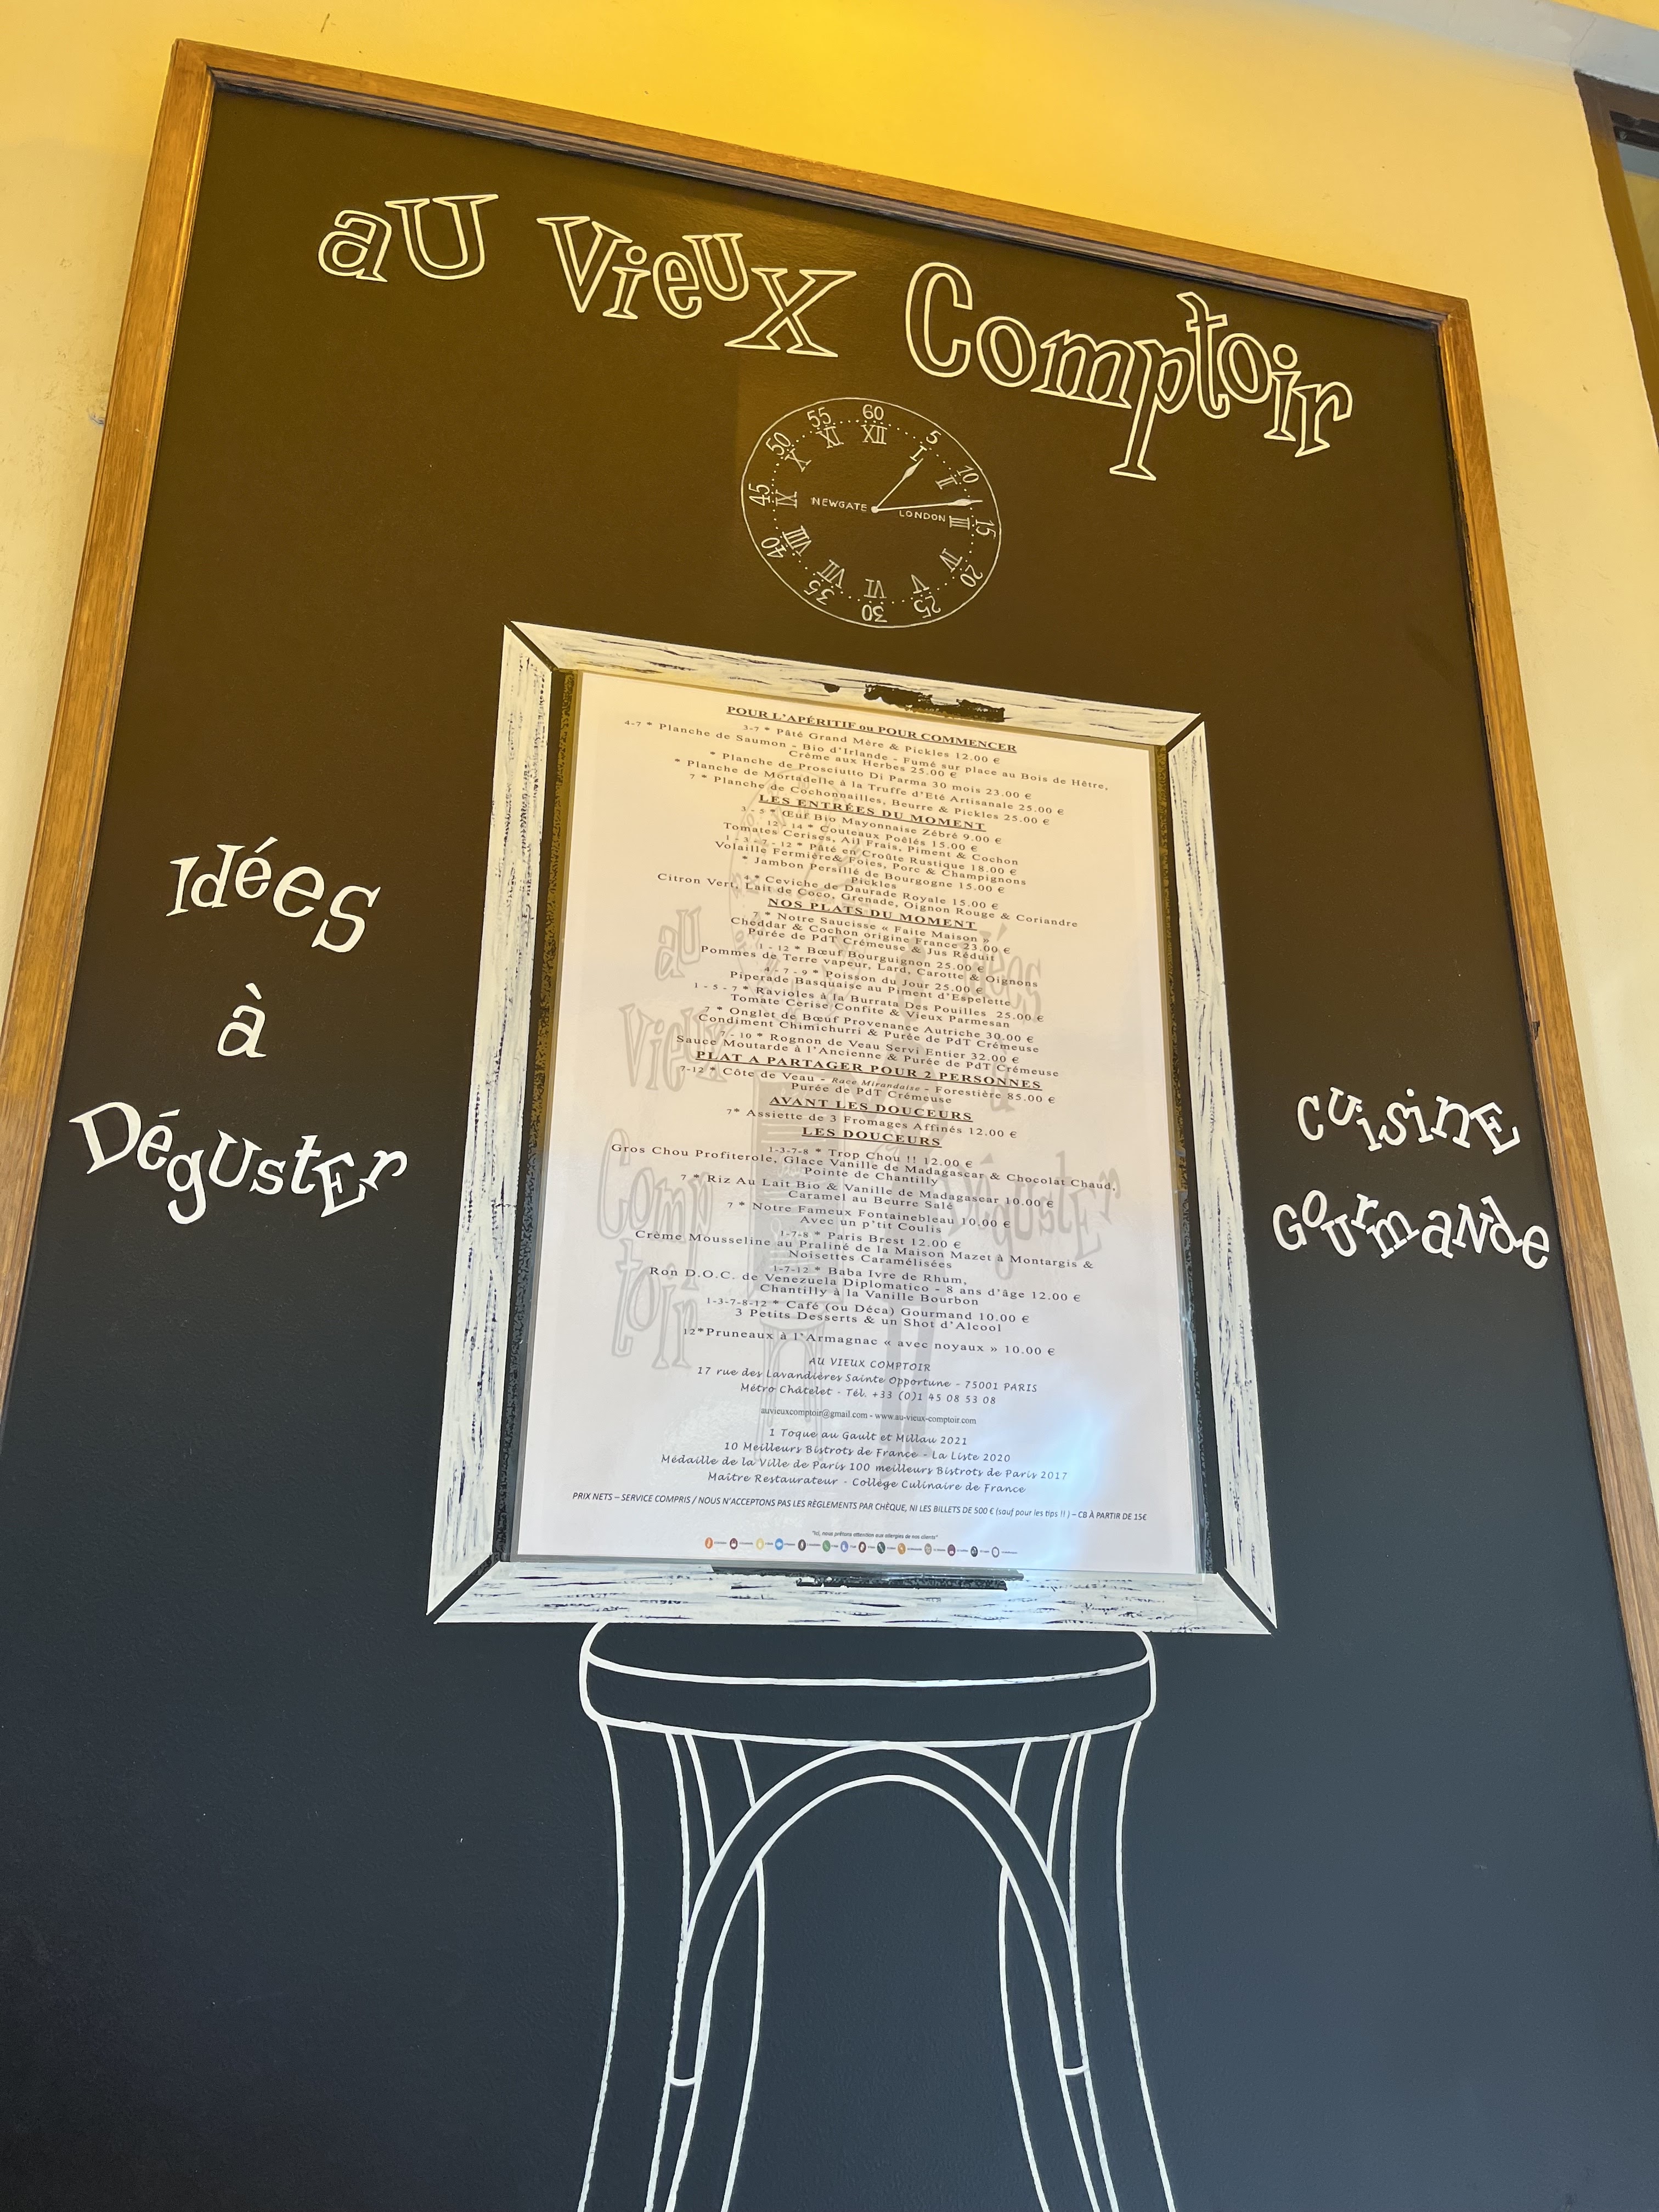 aU Vieux Comptoir
60
55 5
XII
XI I
50 10
X II
NEWGATE LONDON
45 IX III 15
VIII IV
40 20
VII VI V
35 30 25
Idées
à
DégustEr
cuisinE
GourmaNde
POUR L'APÉRITIF ou POUR COMMENCER
3-7 * Pâté Grand Mère & Pickles 12.00 €
4-7 * Planche de Saumon - Bio d'Irlande - Fumé sur place au Bois de Hêtre,
Crème aux Herbes 25.00 €
* Planche de Prosciutto Di Parma 30 mois 23.00 €
* Planche de Mortadelle à la Truffe d'Eté Artisanale 25.00 €
7 * Planche de Cochonnailles, Beurre & Pickles 25.00 €
LES ENTRÉES DU MOMENT
3 - 5 * Œuf Bio Mayonnaise Zébré 9.00 €
12 - 14 * Couteaux Poêlés 15.00 €
Tomates Cerises, Ail Frais, Piment & Cochon
1 - 3 - 7 - 12 * Pâté en Croûte Rustique 18.00 €
Volaille Fermière& Foies, Porc & Champignons
* Jambon Persillé de Bourgogne 15.00 €
Pickles
4 * Ceviche de Daurade Royale 15.00 €
Citron Vert, Lait de Coco, Grenade, Oignon Rouge & Coriandre
NOS PLATS DU MOMENT
7 * Notre Saucisse « Faite Maison »
Cheddar & Cochon origine France 23.00 €
Purée de PdT Crémeuse & Jus Réduit
1 - 12 * Bœuf Bourguignon 25.00 €
Pommes de Terre vapeur, Lard, Carotte & Oignons
4 - 7 - 9 * Poisson du Jour 25.00 €
Piperade Basquaise au Piment d'Espelette
1 - 5 - 7 * Ravioles à la Burrata Des Pouilles 25.00 €
Tomate Cerise Confite & Vieux Parmesan
7 * Onglet de Bœuf Provenance Autriche 30.00 €
Condiment Chimichurri & Purée de PdT Crémeuse
7 - 10 * Rognon de Veau Servi Entier 32.00 €
Sauce Moutarde à l'Ancienne & Purée de PdT Crémeuse
PLAT A PARTAGER POUR 2 PERSONNES
7-12 * Côte de Veau - Race Mirandaise - Forestière 85.00 €
Purée de PdT Crémeuse
AVANT LES DOUCEURS
7* Assiette de 3 Fromages Affinés 12.00 €
LES DOUCEURS
1-3-7-8 * Trop Chou !! 12.00 €
Gros Chou Profiterole, Glace Vanille de Madagascar & Chocolat Chaud,
Pointe de Chantilly
7 * Riz Au Lait Bio & Vanille de Madagascar 10.00 €
Caramel au Beurre Salé
7 * Notre Fameux Fontainebleau 10,00 €
Avec un p'tit Coulis
1-7-8 * Paris Brest 12.00 €
Crème Mousseline au Praliné de la Maison Mazet à Montargis &
Noisettes Caramélisées
1-7-12 * Baba Ivre de Rhum,
Ron D.O.C. de Venezuela Diplomatico - 8 ans d'âge 12.00 €
Chantilly à la Vanille Bourbon
1-3-7-8-12 * Café (ou Déca) Gourmand 10.00 €
3 Petits Desserts & un Shot d'Alcool
12*Pruneaux à l'Armagnac « avec noyaux » 10.00 €
AU VIEUX COMPTOIR
17 rue des Lavandières Sainte Opportune - 75001 PARIS
Métro Châtelet - Tél. +33 (0)1 45 08 53 08
auvieuxcomptoir@gmail.com - www.au-vieux-comptoir.com
1 Toque au Gault et Millau 2021
10 Meilleurs Bistrots de France - La Liste 2020
Médaille de la Ville de Paris 100 meilleurs Bistrots de Paris 2017
Maître Restaurateur - Collège Culinaire de France
PRIX NETS – SERVICE COMPRIS / NOUS N'ACCEPTONS PAS LES RÈGLEMENTS PAR CHÈQUE, NI LES BILLETS DE 500 € (sauf pour les tips !! ) – CB À PARTIR DE 15€
"Ici, nous prêtons attention aux allergies de nos clients"